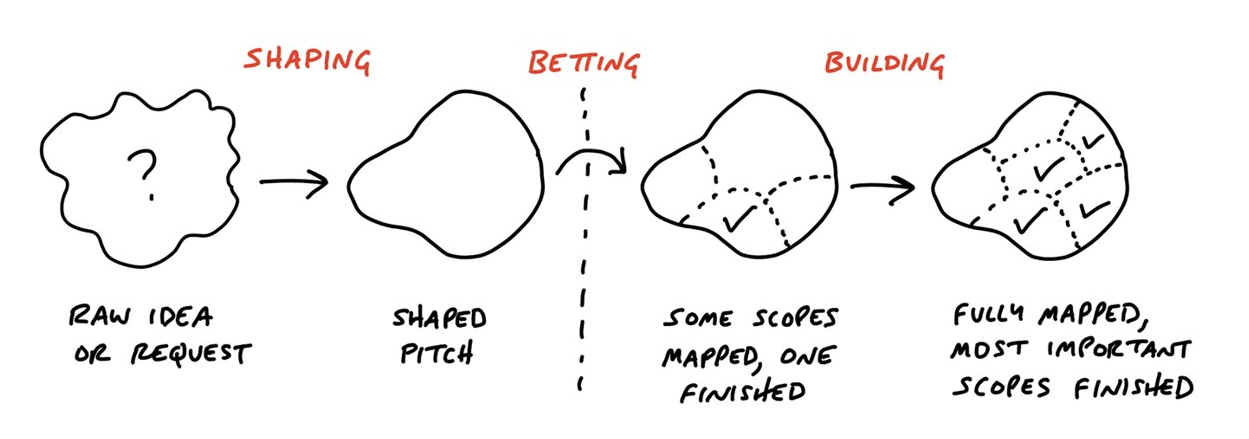 SHAPING
BETTING
BUILDING
?
RAW IDEA
OR REQUEST
SHAPED
PITCH
SOME SCOPES
MAPPED, ONE
FINISHED
FULLY MAPPED,
MOST IMPORTANT
SCOPES FINISHED